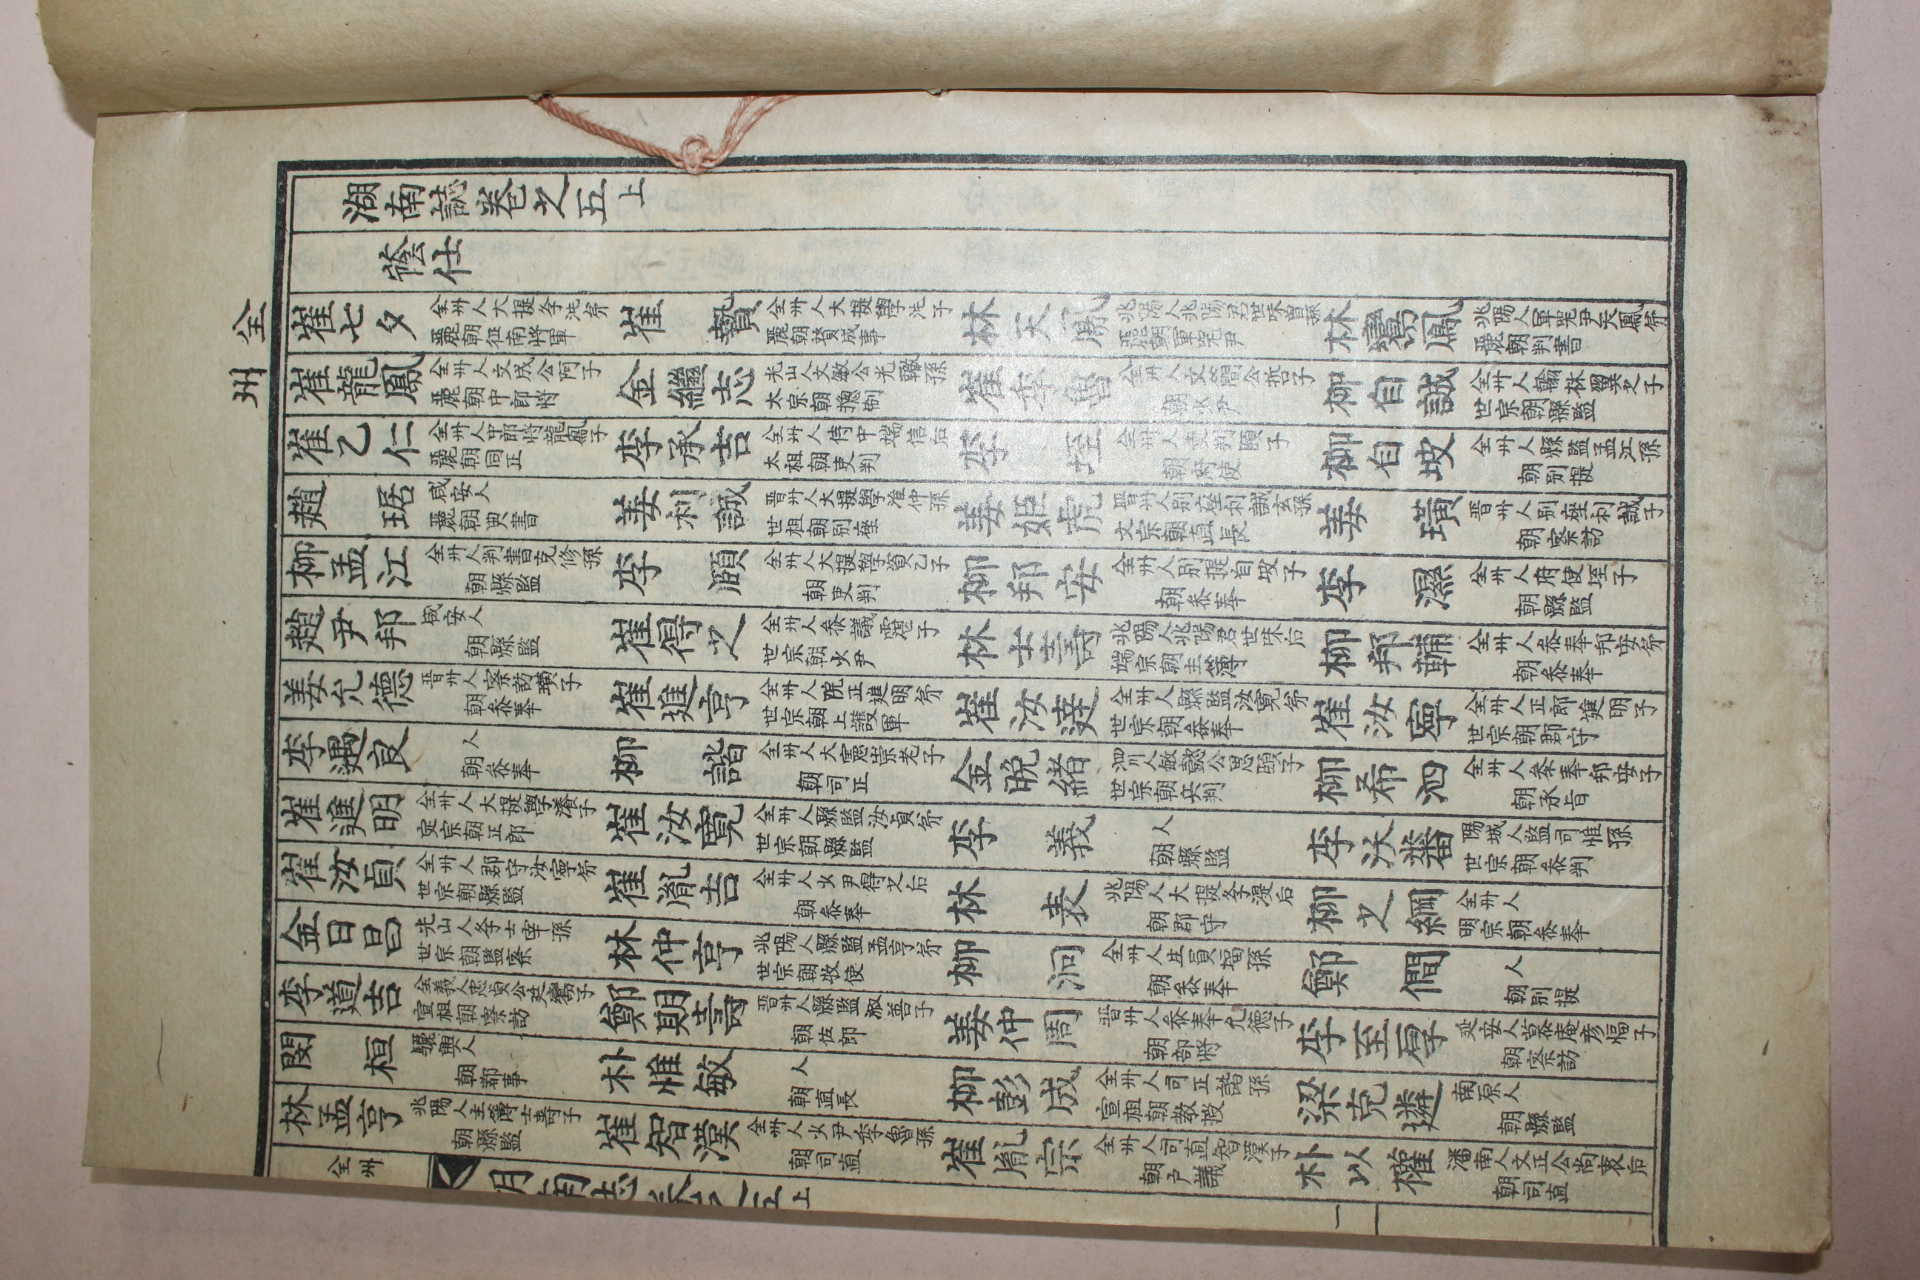 全州
湖南誌卷之五上
蔭仕
崔七夕 全州人大提學沇弟 麗朝征南將軍 崔贄 全州人大提學沇子 麗朝贊成事 林天鳳 兆陽人兆陽君世味曾孫 麗朝軍器尹 林鸞鳳 兆陽人軍器尹天鳳弟 麗朝判書
崔龍鳳 全州人文成公阿子 麗朝中郎將 金繼志 光山人文敏公光轍孫 太宗朝摠制 崔季魯 全州人文簡公哲子 朝少尹 柳自誠 全州人翰林翼之子 世宗朝縣監
崔乙仁 全州人中郎將龍鳳子 麗朝同正 李承吉 全州人侍中端信后 太祖朝吏判 李垤 全州人吏判頤子 朝府使 柳自坡 全州人縣監孟江孫 朝別提
趙琚 咸安人 麗朝典書 姜利誠 晋州人大提學淮仲孫 世祖朝別座 姜姬虎 晋州人別座利誠玄孫 文宗朝直長 姜璜 晋州人別座利誠子 朝察訪
柳孟江 全州人判書克修孫 朝縣監 李頤 全州人大提學資乙子 朝吏判 柳邦安 全州人別提自坡子 朝參奉 李濕 全州人府使垤子 朝縣監
趙尹邦 咸安人 朝縣監 崔得之 全州人參議霮子 世宗朝少尹 林士壽 兆陽人兆陽君世味后 端宗朝主簿 柳邦輔 全州人參奉邦安弟 朝參奉
姜允德 晋州人察訪璜子 朝參奉 崔進亨 全州人院正進明弟 世宗朝上護軍 崔汝達 全州人縣監汝寬弟 世宗朝參奉 崔汝寧 全州人正郎進明子 世宗朝郡守
李遇良 人 朝參奉 柳諧 全州人大憲崇老子 朝司正 金晩緖 泗川人敏懿公思頤子 世宗朝兵判 柳希泗 全州人參奉邦安子 朝承旨
崔進明 全州人大提學瀁子 定宗朝正郎 崔汝寬 全州人縣監汝貞弟 世宗朝縣監 李義 人 朝縣監 李沃蕃 陽城人監司惟孫 世宗朝參判
崔汝貞 全州人郡守汝寧弟 世宗朝縣監 崔胤吉 全州人少尹得之后 朝參奉 林表 兆陽人大提學湜后 朝郡守 柳之綱 全州人 明宗朝參奉
金日昌 光山人學士宰孫 世宗朝監察 林仲亨 兆陽人縣監孟亨弟 世宗朝牧使 柳泂 全州人生員塭孫 朝參奉 鄭僩 人 朝別提
李道吉 全義人忠貞公廷鸞子 宣祖朝察訪 鄭期壽 晋州人縣監淑善子 朝佐郎 姜仲周 晋州人參奉允德子 朝部將 李至厚 延安人慕庵彦愊子 朝察訪
閔桓 驪興人 朝都事 朴惟敏 人 朝直長 柳彭成 全州人司正諧孫 宣祖朝敎授 梁克遴 南原人 朝縣監
林孟亨 兆陽人主簿士壽子 朝縣監 崔智漢 全州人少尹季魯孫 朝司直 崔胤宗 全州人司直智漢子 朝戶議 朴以權 潘南人文正公尚衷后 朝司直
全州
湖南誌卷之五上
一